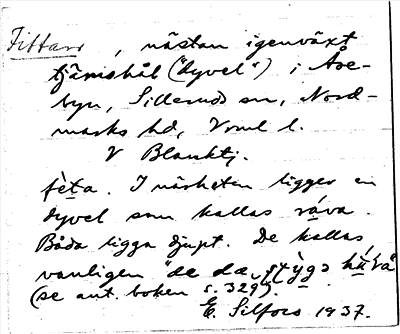 Fittarv, nästan igenväxt
tjärnshål ("dyvel") i Åse-
byn, Sillerud sn, Nord-
marks hd, Vrml l.
V Blanktj.
fèta. I närheten ligger en
dyvel som kallas ráva.
Båda ligga djupt. De kallas
vanligen "de dä stỳgs
(se ant. boken s. 329).
E. Silfors 1937.